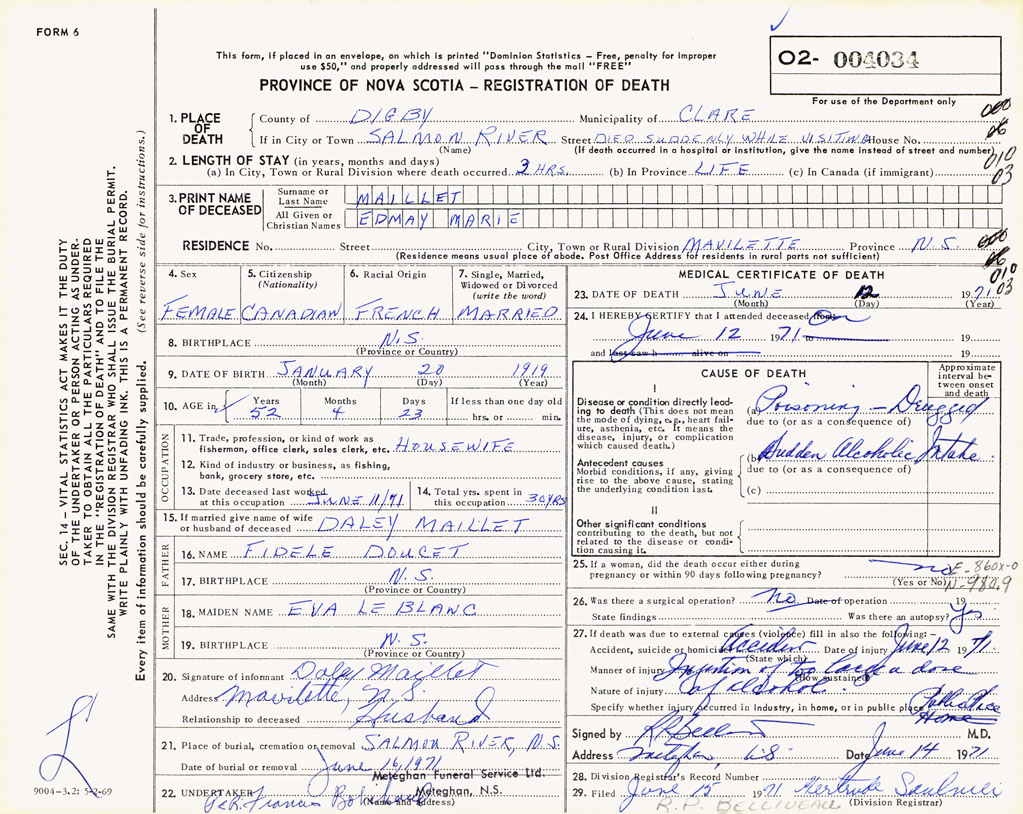 FORM 6
O2- 004034
This form, if placed in an envelope, on which is printed "Dominion Statistics – Free, penalty for improper
use $50," and properly addressed will pass through the mail "FREE"
PROVINCE OF NOVA SCOTIA – REGISTRATION OF DEATH
For use of the Department only
1. PLACE OF DEATH
County of DIGBY Municipality of CLARE
If in City or Town SALMON RIVER Street DIED SUDDENLY WHILE VISITING House No.
(Name) (If death occurred in a hospital or institution, give the name instead of street and number)
2. LENGTH OF STAY (in years, months and days)
(a) In City, Town or Rural Division where death occurred 3 HRS. (b) In Province LIFE (c) In Canada (if immigrant)
010
03
3. PRINT NAME OF DECEASED
Surname or Last Name MAILLET
All Given or Christian Names EDMAY MARIE
RESIDENCE No. Street City, Town or Rural Division MAVILETTE Province N.S.
(Residence means usual place of abode. Post Office Address for residents in rural parts not sufficient)
010
03
4. Sex FEMALE
5. Citizenship (Nationality) CANADIAN
6. Racial Origin FRENCH
7. Single, Married, Widowed or Divorced (write the word) MARRIED
8. BIRTHPLACE N.S.
(Province or Country)
9. DATE OF BIRTH JANUARY 20 1919
(Month) (Day) (Year)
10. AGE in Years 52 Months 4 Days 23 If less than one day old hrs. or min.
OCCUPATION
11. Trade, profession, or kind of work as
fisherman, office clerk, sales clerk, etc. HOUSEWIFE
12. Kind of industry or business, as fishing,
bank, grocery store, etc.
13. Date deceased last worked
at this occupation JUNE 11/71
14. Total yrs. spent in
this occupation 30 YRS
15. If married give name of wife
or husband of deceased DALEY MAILLET
FATHER
16. NAME FIDELE DOUCET
17. BIRTHPLACE N.S.
(Province or Country)
MOTHER
18. MAIDEN NAME EVA LE BLANC
19. BIRTHPLACE N.S.
(Province or Country)
20. Signature of informant Daley Maillet
Address Mavilette, N.S.
Relationship to deceased Husband
21. Place of burial, cremation or removal SALMON RIVER, N.S.
Date of burial or removal June 16, 1971
Meteghan Funeral Service Ltd.
22. UNDERTAKER Meteghan, N.S.
(Name and Address)
MEDICAL CERTIFICATE OF DEATH
23. DATE OF DEATH JUNE 12 1971
(Month) (Day) (Year)
24. I HEREBY CERTIFY that I attended deceased from On
June 12 1971 to 19
and last saw h alive on 19
CAUSE OF DEATH
Approximate interval between onset and death
I
Disease or condition directly leading to death (This does not
mean the mode of dying, e.g., heart failure, asthenia, etc. It means the
disease, injury, or complication
which caused death.)
(a) Poisoning – Drugged
due to (or as a consequence of)
Antecedent causes
Morbid conditions, if any, giving
rise to the above cause, stating
the underlying condition last.
(b) Sudden Alcoholic Intake.
due to (or as a consequence of)
(c)
II
Other significant conditions
contributing to the death, but not
related to the disease or condition causing it.
25. If a woman, did the death occur either during
pregnancy or within 90 days following pregnancy? no
(Yes or No)
E-860X-0
N-980.9
26. Was there a surgical operation? No Date of operation 19
State findings Was there an autopsy? Yes
27. If death was due to external causes (violence) fill in also the following: –
Accident, suicide or homicide Accident Date of injury June 12 1971
(State which)
Manner of injury Ingestion of too large a dose
(How sustained)
Nature of injury of alcohol.
Specify whether injury occurred in industry, in home, or in public place Public Place
Home
Signed by M.D.
Address Meteghan, N.S. Date June 14 1971
28. Division Registrar's Record Number
29. Filed June 15 1971 Gertrude Saulnier
(Division Registrar)
R.P. BELLIVEAU
SEC. 14 – VITAL STATISTICS ACT MAKES IT THE DUTY
OF THE UNDERTAKER OR PERSON ACTING AS UNDERTAKER TO OBTAIN ALL THE PARTICULARS REQUIRED
IN THE "REGISTRATION OF DEATH" AND TO FILE THE
SAME WITH THE DIVISION REGISTRAR WHO SHALL ISSUE THE BURIAL PERMIT.
WRITE PLAINLY WITH UNFADING INK. THIS IS A PERMANENT RECORD.
Every item of information should be carefully supplied. (See reverse side for instructions.)
9004-3.2: 5-2-69